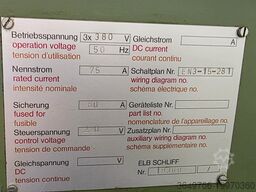 Betriebsspannung 3x 380 V
operation voltage 50 Hz
tension d'utilisation
Gleichstrom A
DC current
courant continu
Nennstrom 75 A
rated current
intensité nominale
Schaltplan Nr.
wiring diagram no.
schéma électrique no.
Sicherung A
fused for
fusible
Geräteliste Nr.
part list no.
nomenclature de l'appareillage no.
Steuerspannung V
control voltage
tension de commande
Zusatzplan Nr.
auxiliary wiring diagram no.
schéma compl. no.
Gleichspannung V
DC
tension continu
ELB SCHLIFF